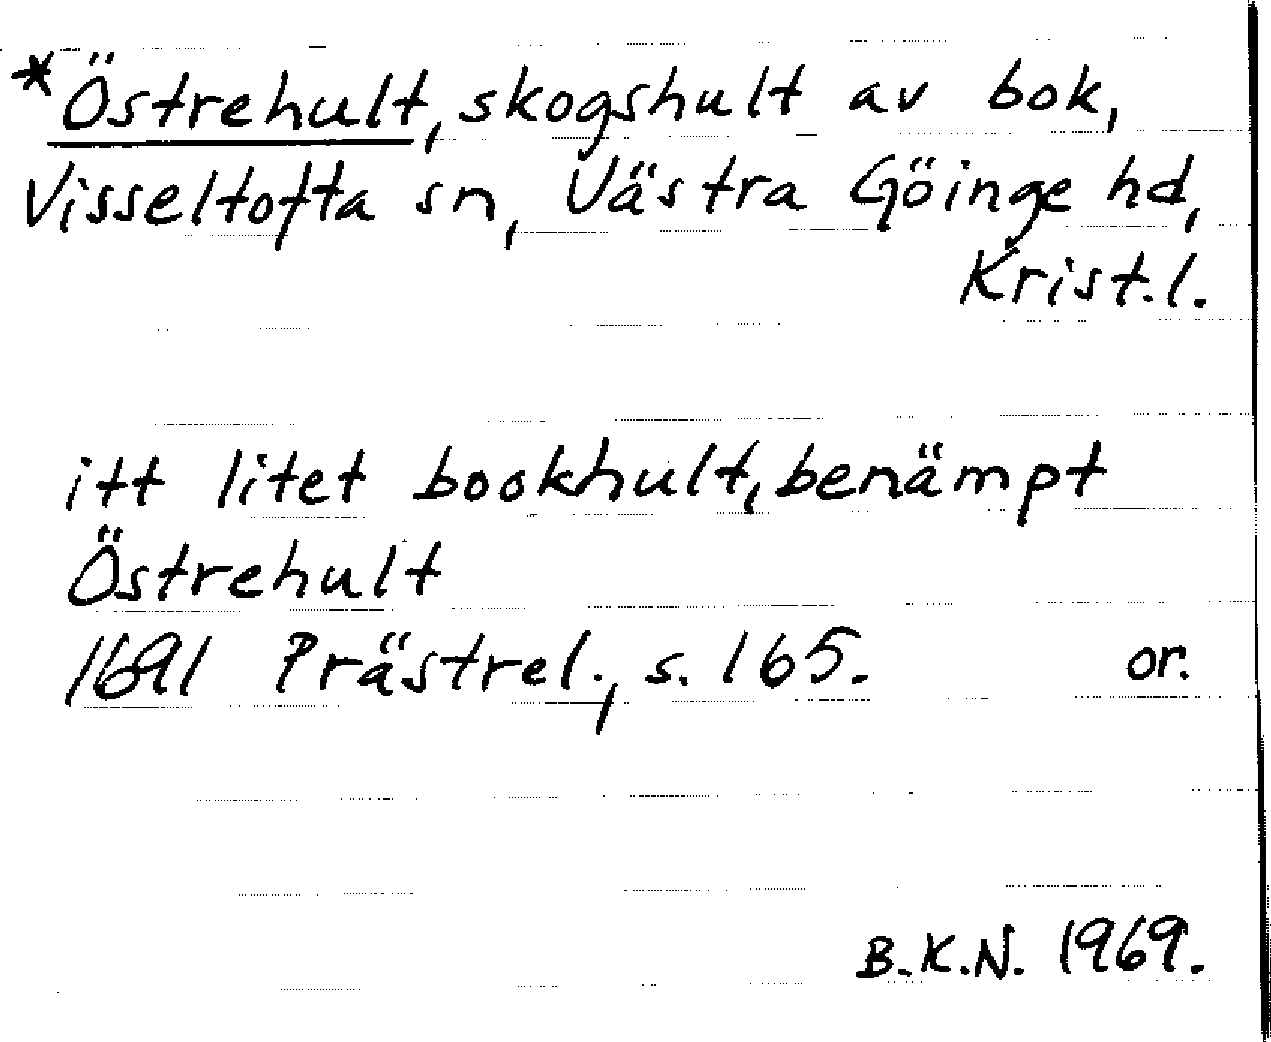 *Östrehult, skogshult av bok,
Visseltofta sn, Västra Göinge hd,
Krist.l.
itt litet bookhult, benämpt
Östrehult
1691 Prästrel., s. 165. or.
B.K.N. 1969.